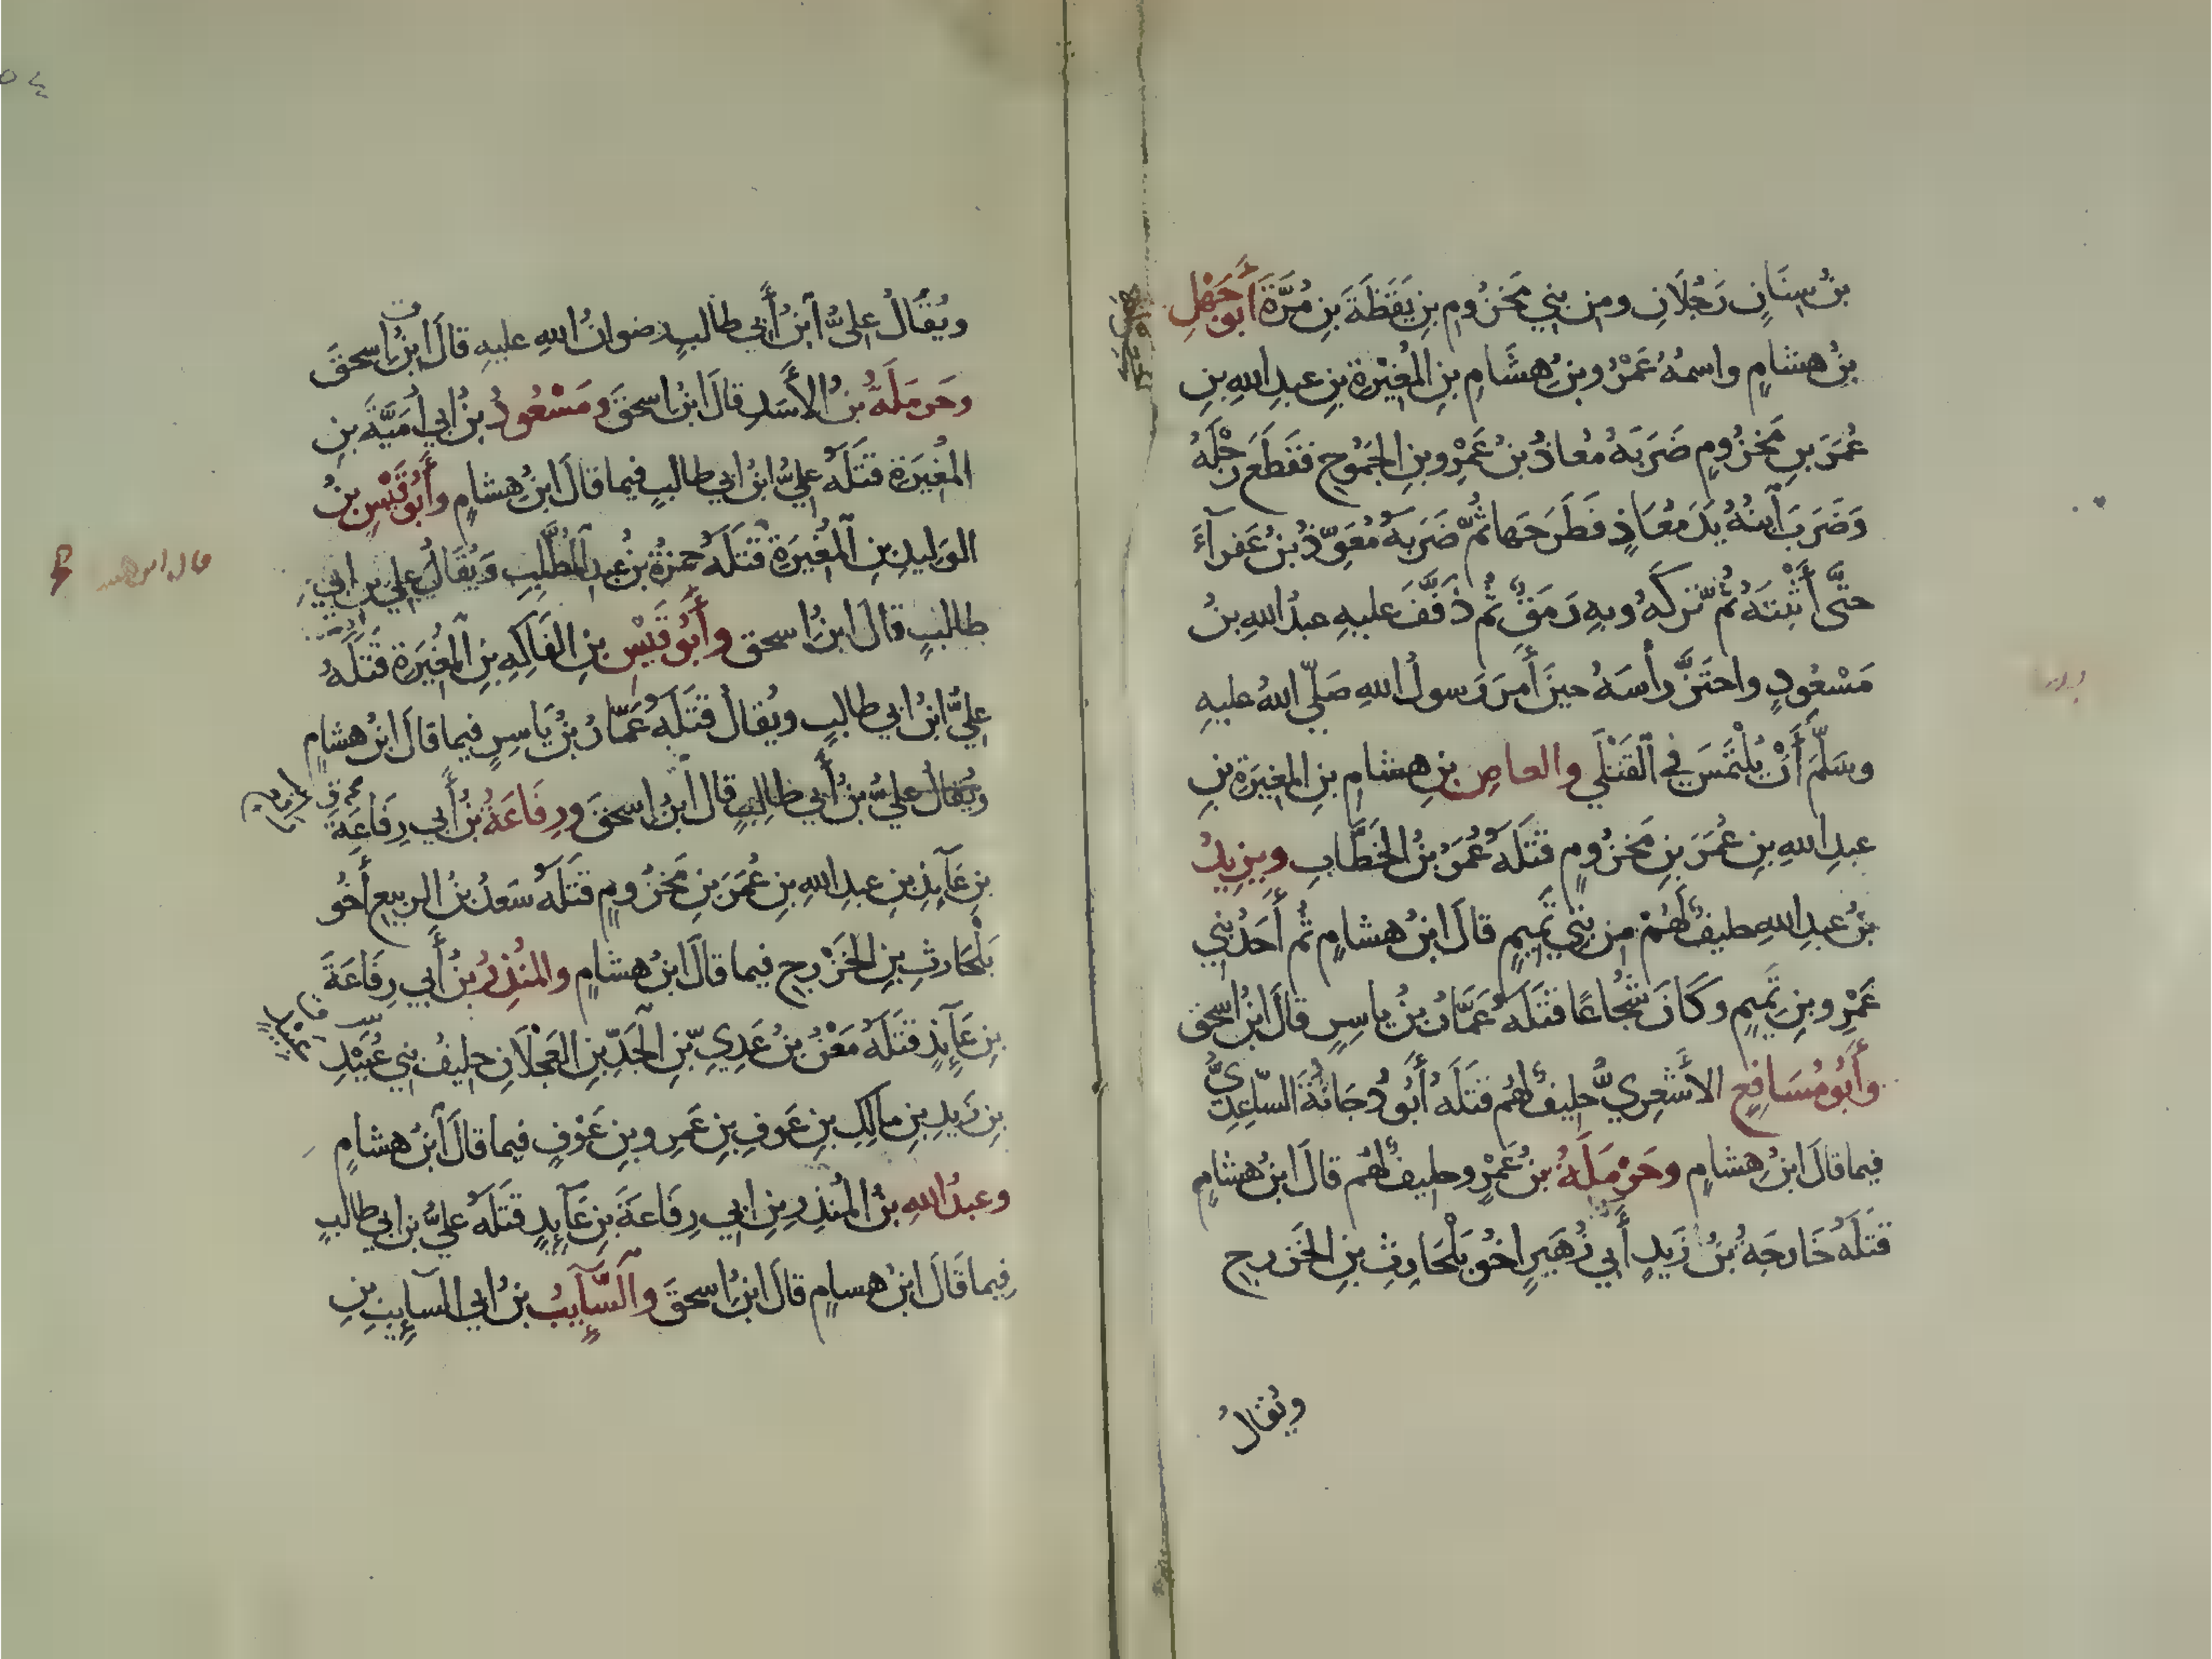 بنُ سِنَانٍ رَجُلَانِ ومِن بني مَخزُومِ بنِ يَقَظَةَ بنِ مُرَّةَ أَبُو جَهْلِ
بنُ هشامٍ واسمُهُ عَمْرُو بنُ هِشَامِ بنِ المُغِيْرةِ بنِ عبدِ اللهِ بنِ
عُمَرَ بنِ مَخزُومٍ ضَرَبَهُ مُعاذُ بنُ عَمْرِو بنِ الجَمُوحِ فَقَطَعَ رِجْلَهُ
وَضَرَبَ ٱبنُهُ يَدَ مُعَاذٍ فَطَرَحَها ثُمَّ ضَرَبَهُ مُعَوِّذُ بنُ عَفرآءَ
حتَّى أَثْبَتَهُ ثُمَّ تَرَكَهُ وبِهِ رَمَقٌ ثُم ذَفَّفَ عليهِ عبدُ اللهِ بنُ
مَسْعُودٍ واحتَزَّ رأْسَهُ حينَ أَمرَ رَسولُ اللهِ صَلّى اللهُ عليهِ
وسَلَّمَ أَنْ يُلْتَمَسَ في ٱلقَتْلَى والعاصِ بنِ هِشامِ بنِ المغِيرَةِ بنِ
عبدِ اللهِ بنِ عُمَرَ بنِ مَخزُومٍ قتَلَهُ عُمَرُ بنُ الخَطَّابِ ويزِيدُ
بنُ عبدِ اللهِ حليفٌ لَهُمْ مِن بَنِي تَمِيمٍ قالَ ابنُ هشامٍ ثُم أَحَدُ بَنِي
عَمْرِو بنِ تَمِيمٍ وكَانَ شُجَاعًا قتَلَهُ عَمَّارُ بنُ ياسِرٍ قالَ ابنُ اسحق
وأَبُو مُسَافِعٍ الأَشعِرِيُّ حليفٌ لهُم قتَلَهُ أَبُو دُجَانَةَ السّاعِدِيُّ
فيما قالَ ابنُ هِشامٍ وحَرْمَلَةُ بنُ عَمْرٍو حليفٌ لهُم قالَ ابنُ هشامٍ
قتَلَهُ خَارجَةُ بنُ زَيدِ أَبي زُهَيرٍ اخُو بَلْحَارِثِ بنِ الخَزرجِ
ويُقالُ
ويُقَالُ عليُّ ٱبنُ أَبي طالبٍ رضوانُ اللهِ عليهِ قالَ ابنُ اسحقَ
وحَرمَلَةُ بنُ الأَسَدِ قالَ ابنُ اسحقَ ومَسْعُودُ بنُ أبي أُمَيَّةَ بنِ
المُغِيَرَةِ قتَلَهُ عليُّ ابنُ ابي طالبٍ فيما قالَ ابنُ هشامٍ وأَبُو قَيْسِ بنُ
الوَليدِ بنِ ٱلمُغِيَرةِ قتَلَهُ حمزةُ بنُ عبدِ ٱلمُطَّلِبِ وَيُقَالُ علي بن ابي
طالبٍ قالَ ابنُ اسحق وأَبُو قَيْسِ بنِ الفَاكِهِ بنِ ٱلمُغِيَرَةِ قتَلَهُ
عليُّ ابنُ ابي طالبٍ ويُقالُ قتَلَهُ عَمَّارُ بنُ يَاسِرٍ فيما قالَ ابنُ هشامٍ
ويُقالُ عليُّ بنُ أَبي طالِبٍ قالَ ابنُ اسحقَ ورِفَاعَةُ بنُ أَبي رِفَاعَةَ
بنِ عَآئِذِ بنِ عبدِ اللهِ بنِ عُمَرَ بنِ مَخزُومٍ قتَلَهُ سَعدُ بنُ الربيعِ أَخُو
بَلْحَارثِ بنِ الخَزْرجِ فيما قالَ ابنُ هشامٍ والمنُذِرُ بنُ أَبي رِفَاعَةَ
بنِ عَآئِذٍ قتَلَهُ مَعْنُ بنُ عَدِيِّ بنِ الجَدِّ بنِ العَجْلَانِ حليفُ بني عُبَيْدِ
بنِ زَيدِ بنِ مالِكِ بنِ عَوفِ بنِ عَمرِو بنِ عَوْفٍ فيما قالَ ٱبنُ هشامٍ
وعبدُ اللهِ بنُ المُنذِرِ بنِ ابي رِفَاعَةَ بنِ عَآئِذٍ قتَلَهُ عليُّ بن ابي طالبٍ
فِيما قَالَ ابنُ هسامٍ قالَ ابنُ اسحقَ وٱلسَّآئِبُ بنُ ابي ٱلسآئِبِ بنِ
قال ابن هشـ